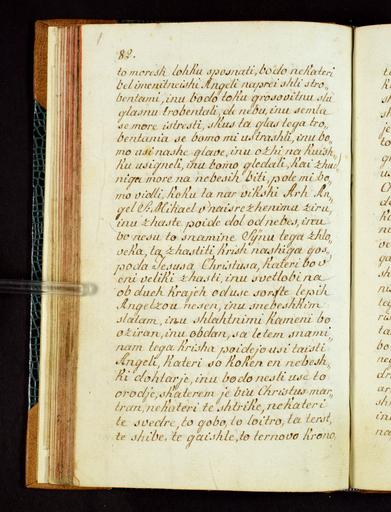 82.
to moresh lohku sposnati, bodo nekateri
bel imenitneishi Angeli naprei shli stro-
bentami, inu bodo toku grosovitnu slu
glasnu trobentali, de nebu, inu semla
se more istresti, skus ta glas tega tro-
bentania se bomo mi ustrashli, inu bo-
mo usi nashe glave, inu ozhi na kuishku
ku usigneli, inu bomo gledali, kai zhu-
niga more na nebesih biti, pole mi bo-
mo vidli, koku ta nar vikshi Arh An-
gel S. Mihael v'naisrezhenimu ziru,
inu zhaste poide dol od nebes, inu
bo nesu to snamine Synu tega zhlo-
veka, ta zhastiti krish nashiga gos-
poda Jesusa Christusa, kateri bo v
eni veliki zhasti, inu svetlobi na
ob dueh krajeh od use sorte lepih
Angelzou nesen, inu snebeshkim
slatam, inu shlahtnimi kameni bo
oziran, inu obdan, sa letem snami-
nam tega krisha poidejo usi taisti
Angeli, kateri so koken en nebesh-
ki dohtarje, inu bodo nesti use to
orodje, skaterem je biu Christus mar-
tran, nekateri te shtrike, nekateri
te svedre, to gobo, to loitro, ta terst,
te shibe, te gaishle, to ternovo krono,